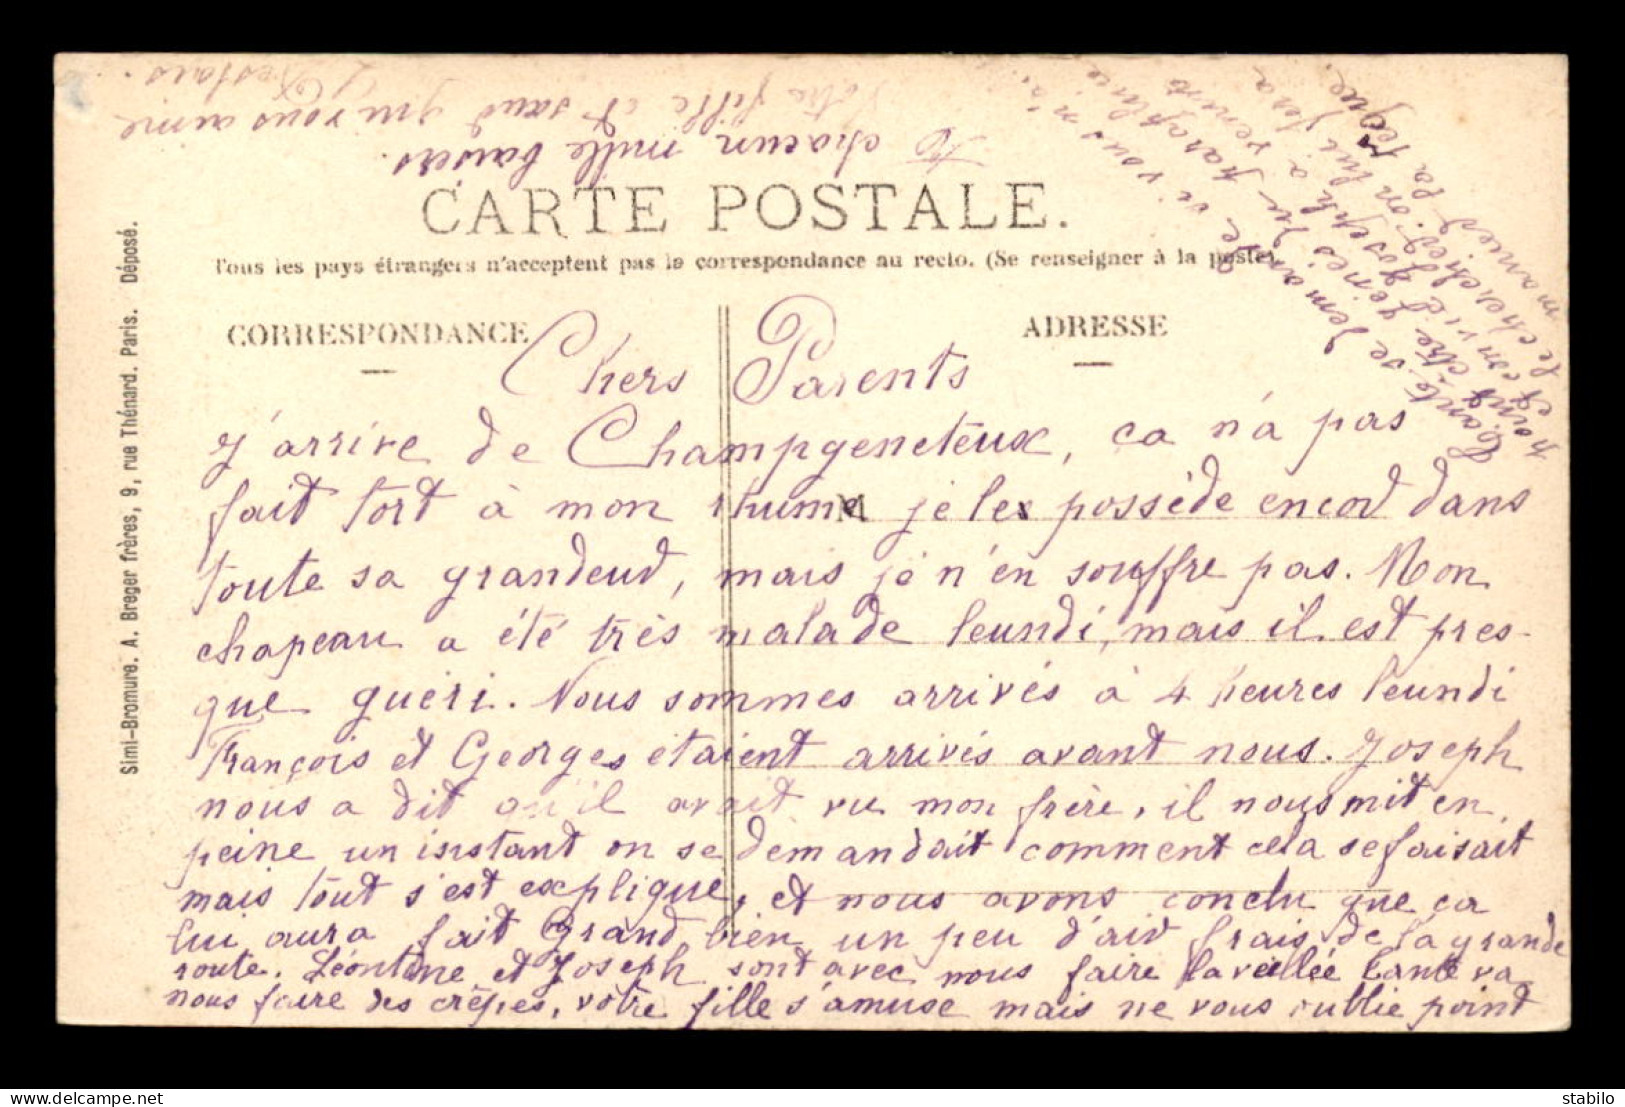 CARTE POSTALE.
Tous les pays étrangers n'acceptent pas la correspondance au recto. (Se renseigner à la poste).
CORRESPONDANCE
ADRESSE
Simi-Bromure. A. Breger frères, 9, rue Thénard. Paris. Déposé.
Chers Parents
J'arrive de Champgeneteux, ca n'a pas
fait tort à mon rhume je les possède encor dans
toute sa grandeur, mais je n'en souffre pas. Mon
chapeau a été très malade leundi, mais il est pres-
que guéri. Nous sommes arrivés à 4 heures leundi
François et Georges étaient arrivés avant nous. Joseph
nous a dit qu'il avait vu mon frère, il nous mit en
peine un instant on se demandait comment cela se faisait
mais tout s'est explique, et nous avons conclu que ça
lui aura fait Grand bien un peu d'air frais de la grande
route. Léontine et Joseph sont avec nous faire la veillée tante va
nous faire des crêpes, votre fille s'amuse mais ne vous oublie point
A chacun mille baisers.
Votre fille et sœur qui vous aime
tante de demande si vous n'a
parapluie
Joseph a venir
on lui fera
manier la